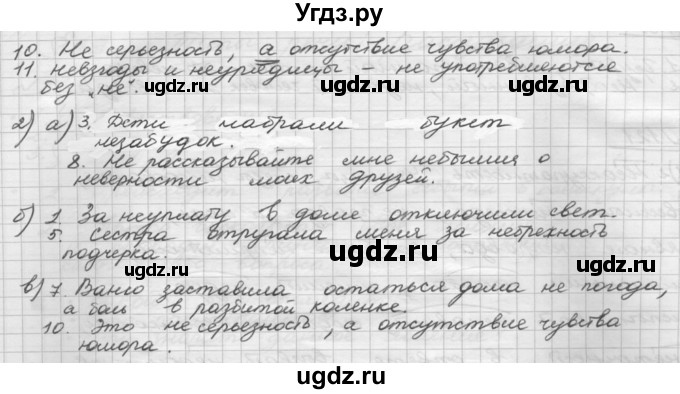 Угдз.ру
10. Не серьезность, а отсутствие чувства юмора.
11. невзгоды и неурядицы – не употребляются
без „не".
2) а) 3. Дети набрали букет
незабудок.
8. Не рассказывайте мне небылиц о
неверности моих друзей.
б) 1. За неуплату в доме отключили свет.
5. Сестра отругала меня за небрежность
подчерка.
в) 7. Ваню заставила остаться дома не погода,
а боль в разбитой коленке.
10. Это не серьезность, а отсутствие чувства
юмора.
ugdz.ru
ugdz.ru
ugdz.ru
ugdz.ru
ugdz.ru
ugdz.ru
ugdz.ru
ugdz.ru
ugdz.ru
ugdz.ru
ugdz.ru